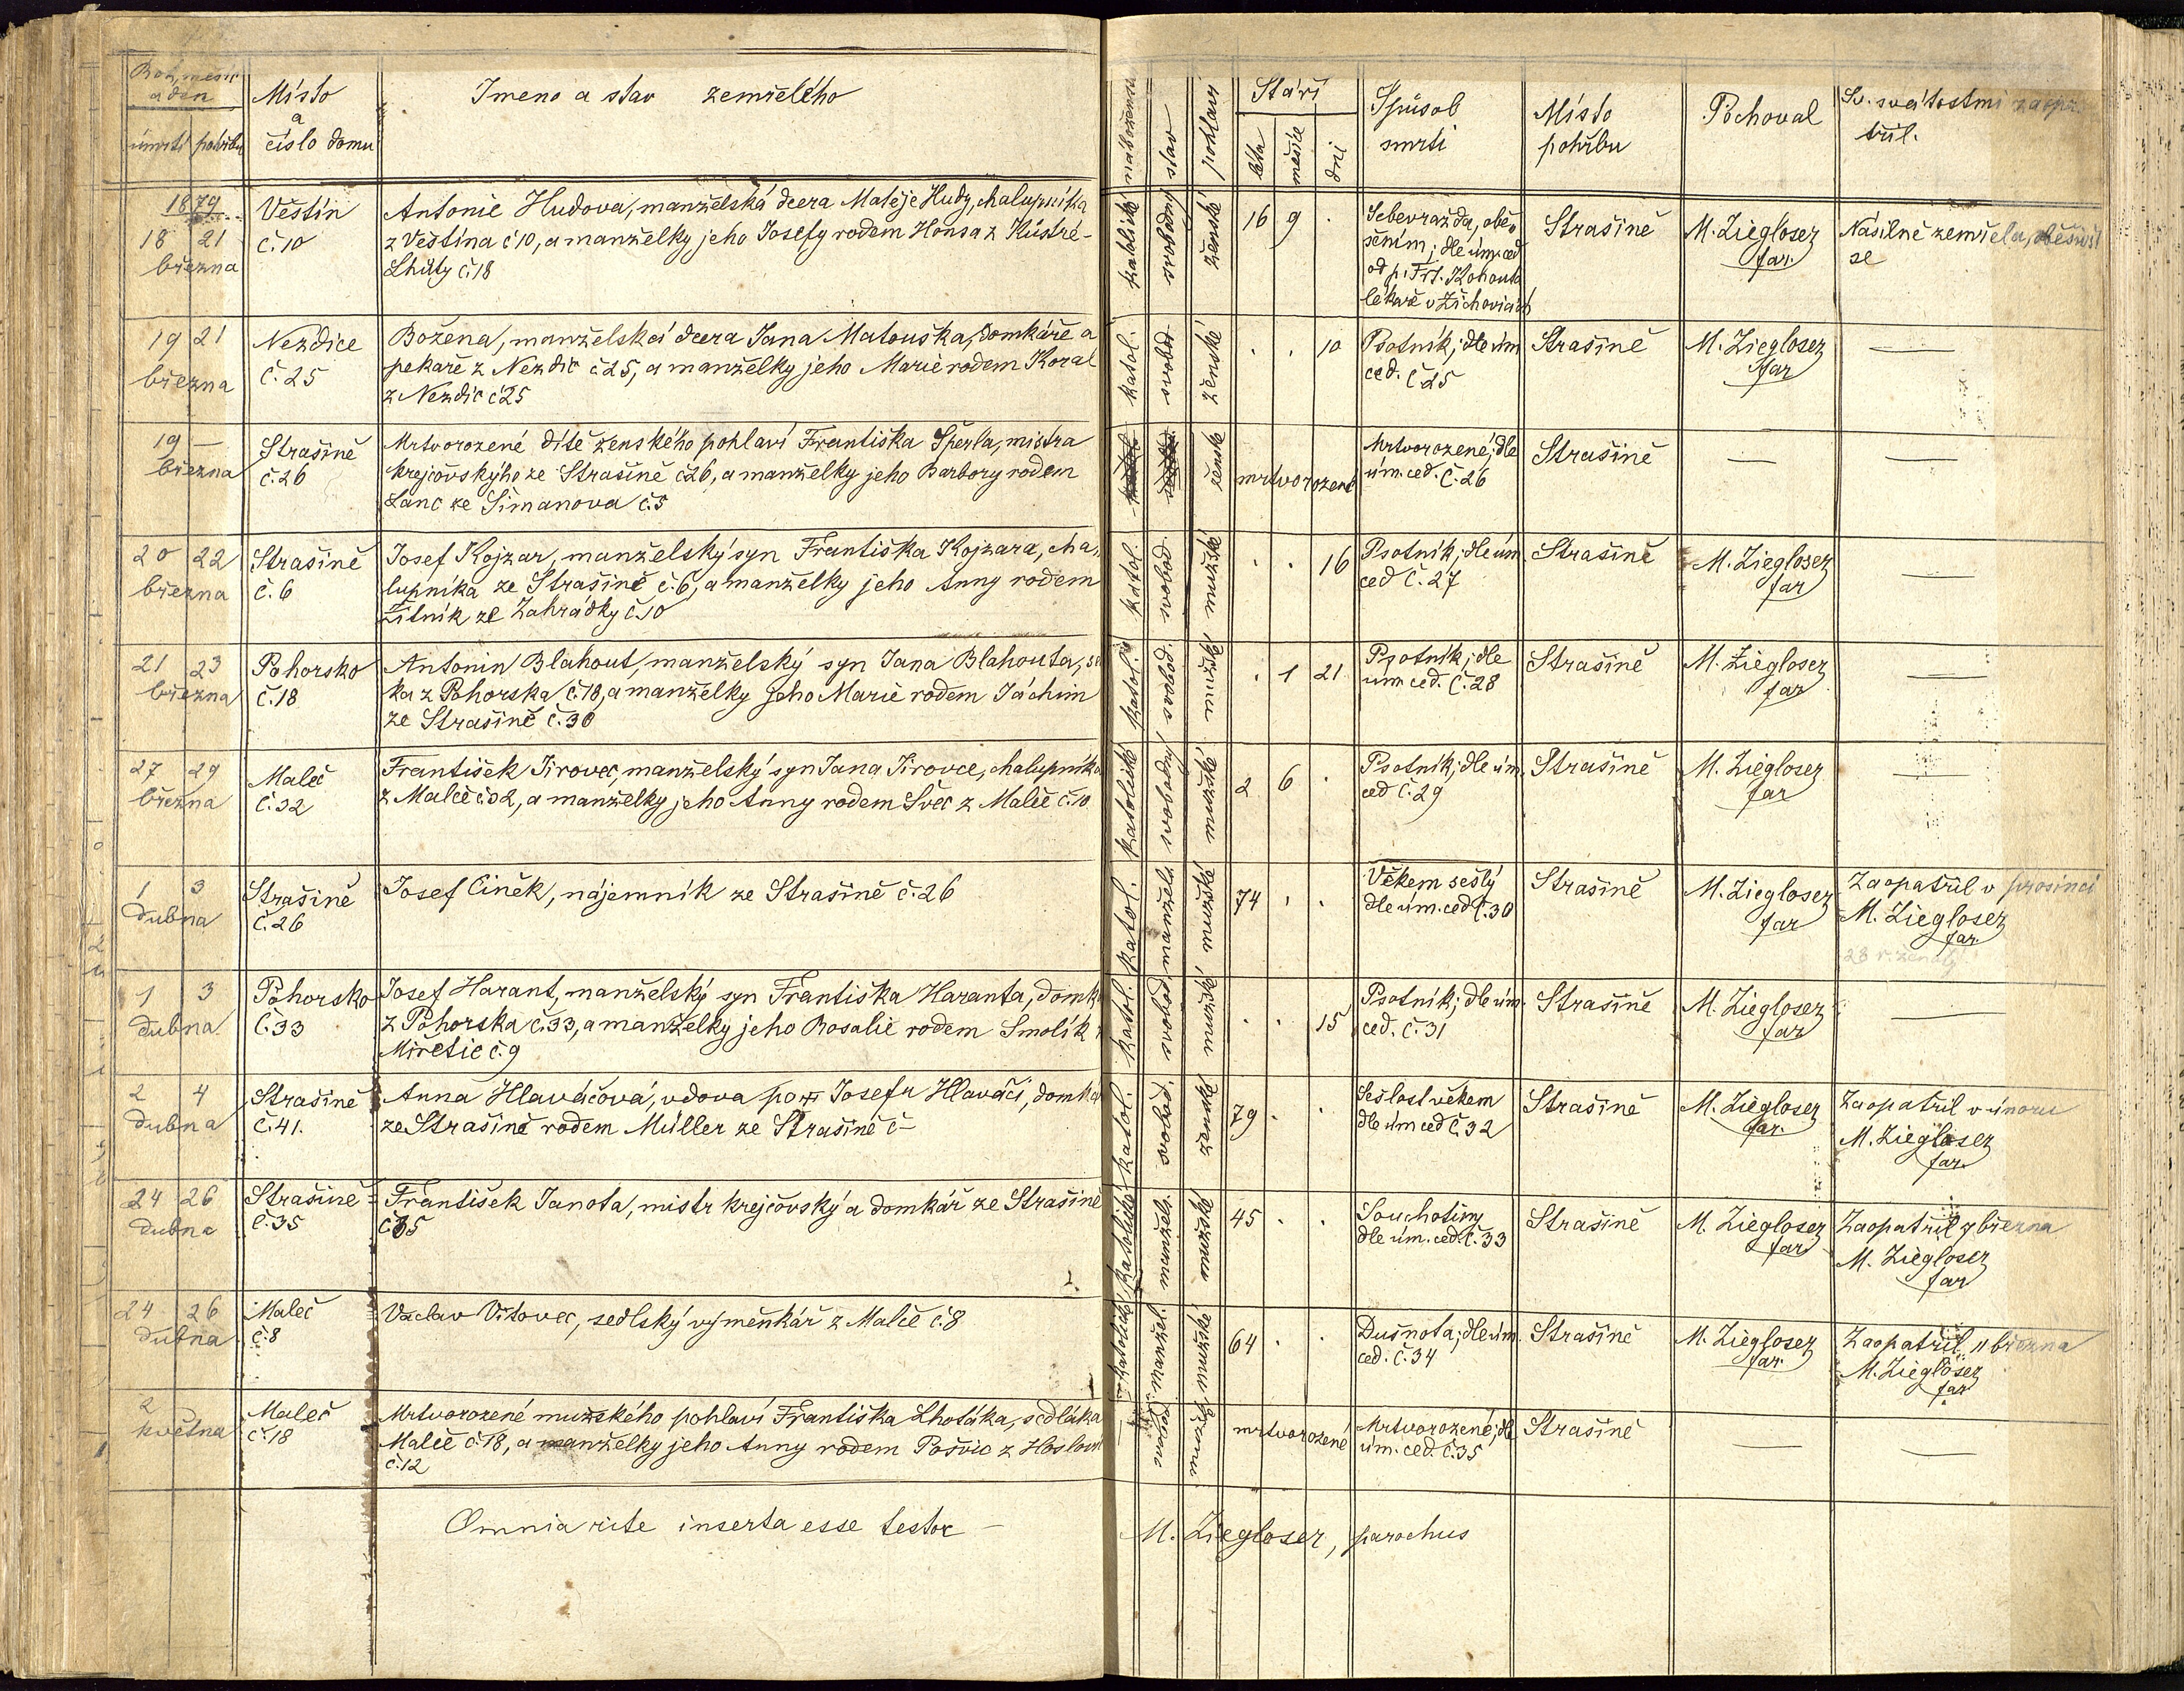 Rok, měsíc
a den
úmrtí pohřbu
Místo
a
číslo domu
Jmeno a stav zemřelého
náboženství
stav
pohlaví
Stáří
léta
měsíce
dni
Spůsob
smrti
Místo
pohřbu
Pochoval
Sv. svátostmi zaopa
třil.
1879
18 21
března
Věštín
č. 10
Antonie Hudova, manželská dcera Matěje Hudy, chalupníka
z Věštína č 10, a manželky jeho Josefy rodem Honsa z
Lhůty č. 18
katolické
svobodný
ženské
16 9 .
Sebevražda, obě-
šením; dle úm. ced
od p. Frt. Kohouta
lékaře v Žichovicích
Strašíně
M. Ziegloser
far.
Násilně zemřela, oběsivši
se
19 21
března
Nezdice
č. 25
Božena, manželská dcera Jana Matouška, domkáře a
pekaře z Nezdic č 25, a manželky jeho Marie rodem Koral
z Nezdic č 25
katol.
svobod
ženské
. . 10
Psotník; dle úm
ced. č 25
Strašíně
M. Ziegloser
far
—
19 —
března
Strašíně
č. 26
Mrtvorozené dítě ženského pohlaví Františka Šperla, mistra
krejčovskýho ze Strašíně č 26, a manželky jeho Barbory rodem
Lanc ze Šimanova č. 5
ženské
mrtvorozené
Mrtvorozené; dle
úm. ced. č. 26
Strašíně
—
—
20 22
března
Strašíně
č. 6
Josef Kojzar, manželský syn Františka Kojzara, cha-
lupníka ze Strašíně č. 6, a manželky jeho Anny rodem
Žitník ze Zahrádky č. 10
katol.
svobod
mužské
. . 16
Psotník; dle úm
ced č. 27
Strašíně
M. Ziegloser
far
—
21 23
března
Pohorsko
č. 18
Antonin Blahout, manželský syn Jana Blahouta,
ka z Pohorska č. 18, a manželky jeho Marie rodem Jáchim
ze Strašíně č. 30
katol.
svobod.
mužské
. 1 21
Psotník; dle
úm ced. č. 28
Strašíně
M. Ziegloser
far
—
27 29
března
Maleč
č. 32
František Jirovec, manželský syn Jana Jirovce, chalupníka
z Malče č 32, a manželky jeho Anny rodem Švec z Malče č. 10
katolické
svobodný
mužské
2 6 .
Psotník; dle úm.
ced č. 29
Strašíně
M. Ziegloser
far
—
1 3
dubna
Strašíně
č. 26
Josef Ciněk, nájemník ze Strašíně č. 26
katol.
manžels
mužské
74 . .
Věkem sešlý
dle úm. ced č. 30
Strašíně
M. Ziegloser
far
Zaopatřil v prosinci
M. Ziegloser
far.
1 3
dubna
Pohorsko
č. 33
Josef Harant, manželský syn Františka Haranta, domk
z Pohorska č. 33, a manželky jeho Rosalie rodem Smolík z
Miřetic č. 9
katol.
svobod
mužské
. . 15
Psotník; dle úm.
ced. č. 31
Strašíně
M. Ziegloser
far
—
2 4
dubna
Strašíně
č. 41.
Anna Hlaváčová, vdova po Josefu Hlaváči, domká
ze Strašíně rodem Müller ze Strašíně č –
katol.
svobod.
ženské
79 . .
Sešlost věkem
dle úm ced č. 32
Strašíně
M. Ziegloser
far.
Zaopatřil v únoru
M. Ziegloser
far.
24 26
dubna
Strašíně
č. 35
František Janota, mistr krejčovský a domkář ze Strašíně
č 35
katolické
manžels.
mužské
45 . .
Souchotiny
dle úm. ced. č. 33
Strašíně
M. Ziegloser
far
Zaopatřil 7 března
M. Ziegloser
far
24 26
dubna
Maleč
č. 8
Vaclav Vítovec, sedlský výměnkář z Malče č. 8
katolické
manžel.
mužské
64 . .
Dušnota; dle úm.
ced. č. 34
Strašíně
M. Ziegloser
far.
Zaopatřil 11 března
M. Ziegloser
far
2
května
Maleč
č. 18
Mrtvorozené mužského pohlaví Františka Lhotáka, sedláka
Malče č. 18, a manželky jeho Anny rodem Pošvic z
č. 12
mužské
mrtvorozené
Mrtvorozené; dle
úm. ced. č. 35
Strašíně
—
—
Omnia rite inserta esse testor — M. Ziegloser, parochus